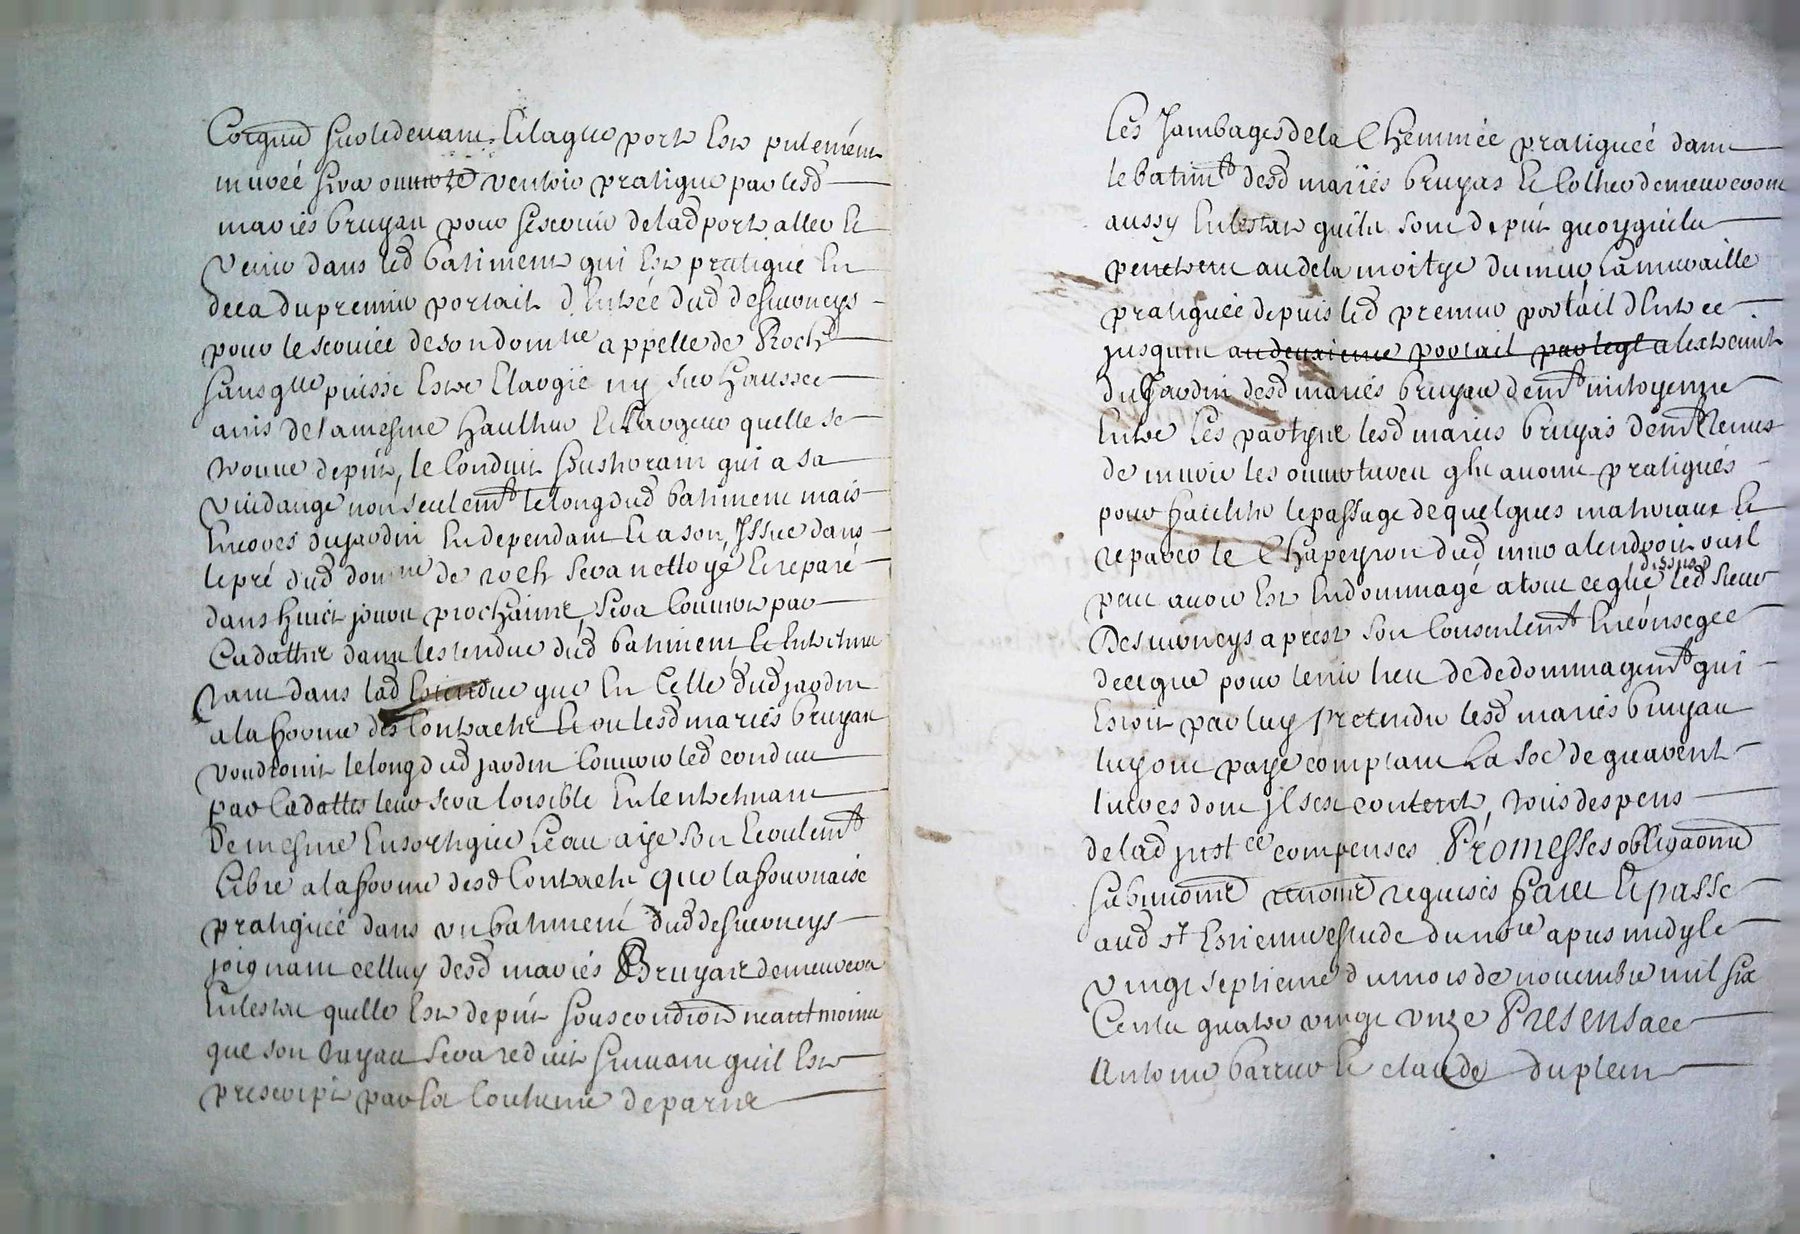 et laque porte est pntement
murée sera pratiqué par lesd
mariés bruyas pour se servir de lad porte aller et
venir dans led batiment qui est pratiqué en
deca du premier portail d'entrée dud desverneys
pour le service de son domne appelle de Roch
sans qlle puisse estre elargie ny sur haussee
ains de la mesme hautheur et largeur quelle se
trouve depnt, le conduit qui a sa
vuidange non seulemt le long dud batiment mais
encores du jardin en dependant et a son issue dans
le pré dud domne de roch sera nettoyé et reparé
dans huict jours prochains, sera couvert par
Cadattes dans lestendue dud batiment et entretenu
tant dans lad estendue que en celle dud jardin
a la forme des contracts et ou lesd mariés bruyas
voudroint le long dud jardin couvrir led conduit
par Cadattes leur sera loisible en lentretenant
de mesme en sorte que leau aye son ecoulemt
libre a la forme desd Contracts que la fournaise
pratiquée dans un batiment dud desverneys
joignant celluy desd mariés Bruyas demeurera
en lestat quelle est depnt sous condion neantmoins
que son tuyau sera reduit suivant quil est
prescript par la coutume de paris
Les Jambages de la Chemmée pratiquée dans
le batimt desd mariés bruyas et demeureront
aussy en lestat quils sont depnt quoyquils
penetrent au dela moitye du mur La muraille
pratiquée depuis led premier portail d'entree
jusques au deuxieme portail par legl a lextremité
du Jardin desd mariés bruyas demt mitoyenne
entre les partyes lesd mariés bruyas demt tenus
de murer les ouvertures qls avoint pratiqués
pour faciliter le passage de quelques materiaux et
reparer le Chapeyron dud mur a lendroit ou il
peut avoir est endommagé a tout ce que dessus led sieur
Desverneys a prest son consentemt en conseqce
de ce que pour tenir lieu de dedommagemt qui
estoit par luy pretendu lesd mariés bruyas
luy ont payé comptant La soe de quarent
livres dont il sest contenté, tous despens
de lad justce compenses Promesses obligaons
submions renons requises Faict et passé
aud st Estienne estude du nore apres midy le
vingt septieme du mois de novembre mil six
Cents quatre vingt unze Presens a ce
Antoine barrier et claude duplein